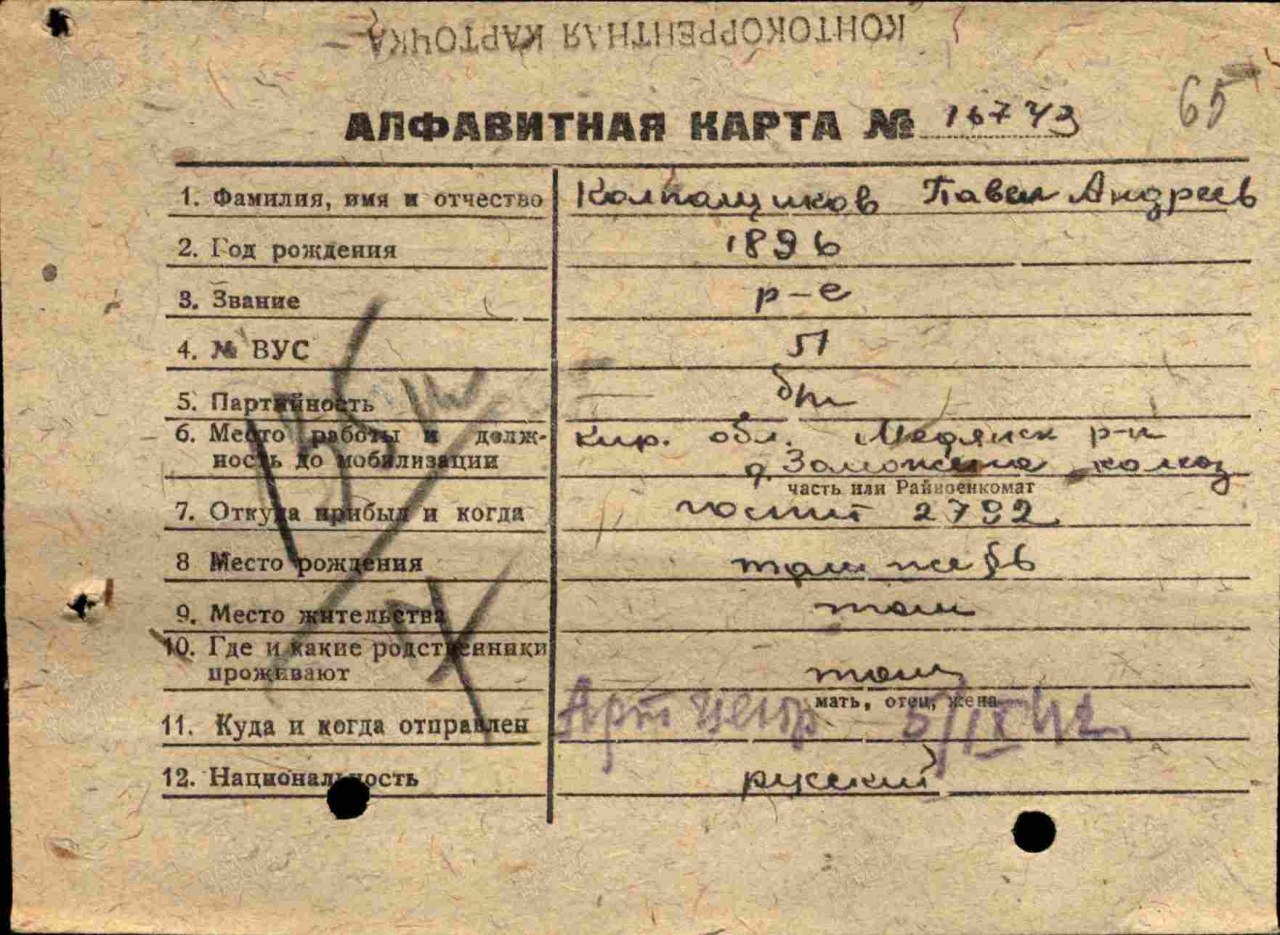 КОНТОКОРРЕНТНАЯ КАРТОЧКА
65
АЛФАВИТНАЯ КАРТА № 16743
1. Фамилия, имя и отчество Колпащиков Павел Андреев
2. Год рождения 1896
3. Звание р-е
4. № ВУС
5. Партийность бп
6. Место работы и долж- Кир. обл. Медянск р-н
ность до мобилизации д. колхоз
часть или Райвоенкомат
7. Откуда прибыл и когда госпит 2792
8 Место рождения там же
9. Место жительства там
10. Где и какие родственники
проживают там
мать, отец, жена
11. Куда и когда отправлен Арт 5/IX 42
12. Национальность русский